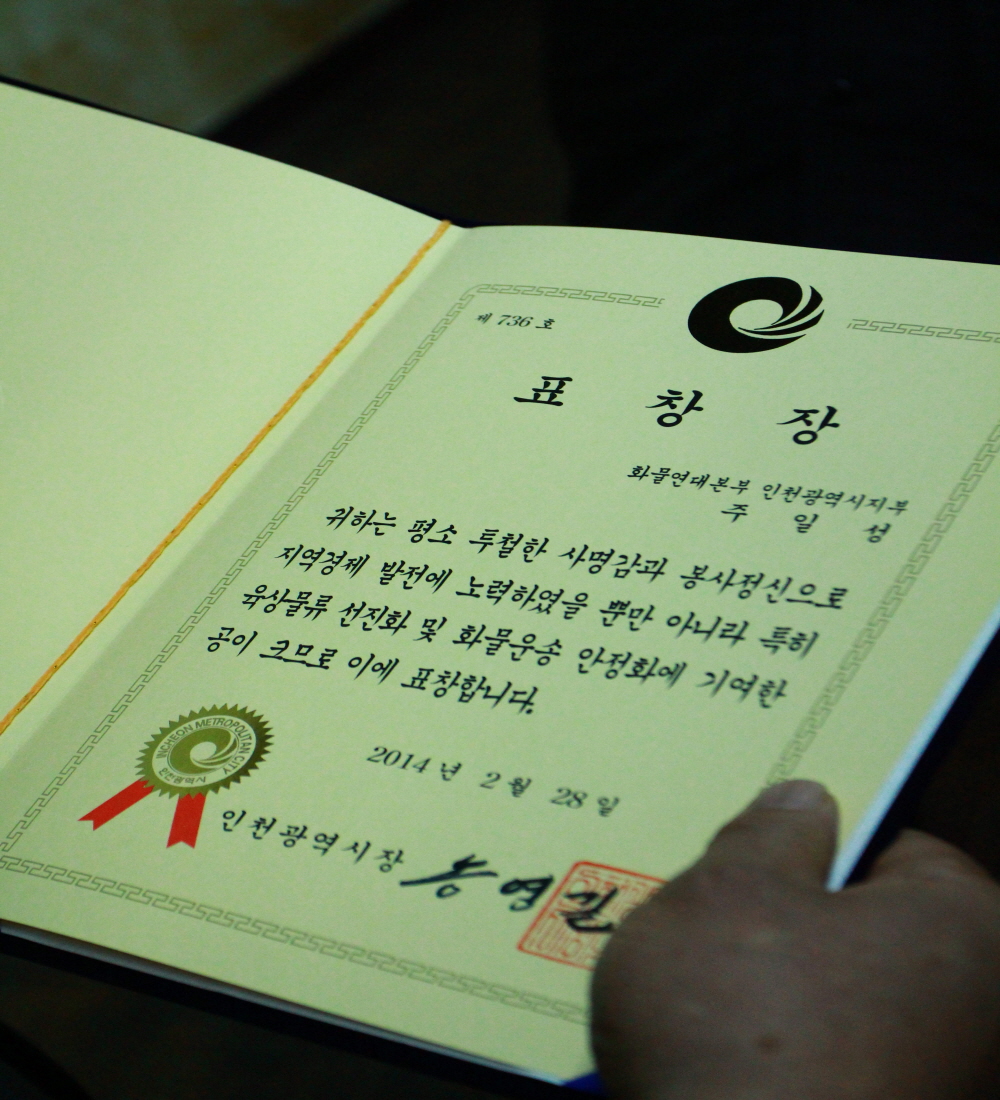 제 736 호
표 창 장
화물연대본부 인천광역시지부
주 일 성
귀하는 평소 투철한 사명감과 봉사정신으로
지역경제 발전에 노력하였을 뿐만 아니라 특히
육상물류 선진화 및 화물운송 안정화에 기여한
공이 크므로 이에 표창합니다.
2014 년 2 월 28 일
INCHEON METROPOLITAN CITY
인천광역시
인천광역시장 송영길